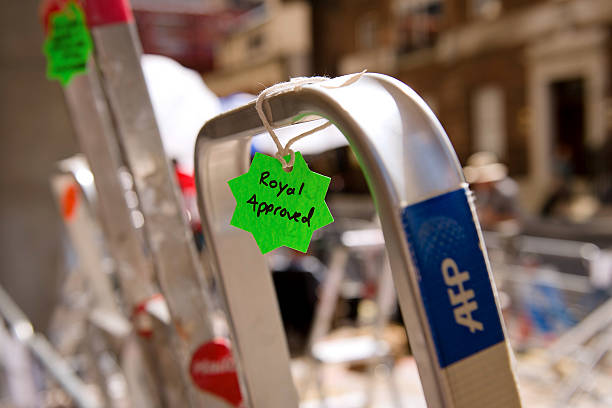 Royal
Approved
AFP